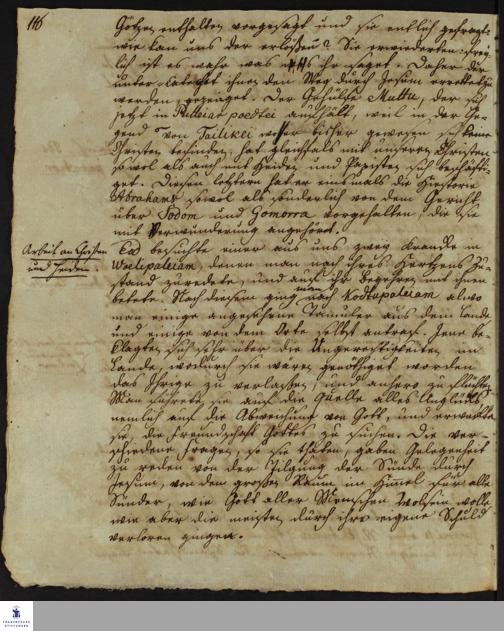 116
Götzen enthalten vorgesagt und sie endlich gefragt:
wie kan uns der erlösen? Sie erwiederten: frey-
lich ist es wahr was ihr saget. Daher der
unter-Catechet ihnen den Weg durch Jesum errettet zu
werden, gezeiget. Der Gehülfe Muttu, der sich
jetzt in Pulleiarpoedtei aufhält, weil in der Ge-
gend von Tailikei woher bisher gewesen sich keine
Christen befinden, hat gleichfals mit unsern Christen
sowol als auch mit Heiden und Papisten sich beschäfti-
get. Diesen letztern hat er einsmals die Historie
Abrahams sowol als sonderlich von dem Gericht
über Sodom und Gomorra vorgehalten, die sie
mit Verwunderung angehört.
Arbeit an Christen
und Heiden.
Es besuchte einer aus uns zwey Krancke in
Woelipaleiam, denen man nach ihres Hertzens Zu-
stand zuredete, und auf ihr Begehren mit ihnen
betete. Nach diesem ging man nach Kodtupaleiam alwo
man einige angesehene Tamuler aus dem Lande
und einige von dem Orte selbst antraf. Jene be-
klagten sich sehr über die Ungerechtigkeiten im
Lande, wodurch sie wären genöthiget worden
das Ihrige zu verlassen, und anhero zu flüchten.
Man führete sie auf die Quelle alles Unglücks
nemlich auf die Abweichung von Gott, und erweckte
sie die Freundschaft Gottes zu suchen. Die ver-
schiedene Fragen, so sie thäten, gaben Gelegenheit
zu reden von der Tilgung der Sünde durch
Jesum, von dem grossen Raum im Himel für alle
Sünder, wie Gott aller Menschen Wolseyn wolle
wie aber die meisten durch ihre eigene Schuld
verloren gingen.
FRANCKESCHE
STIFTUNGEN